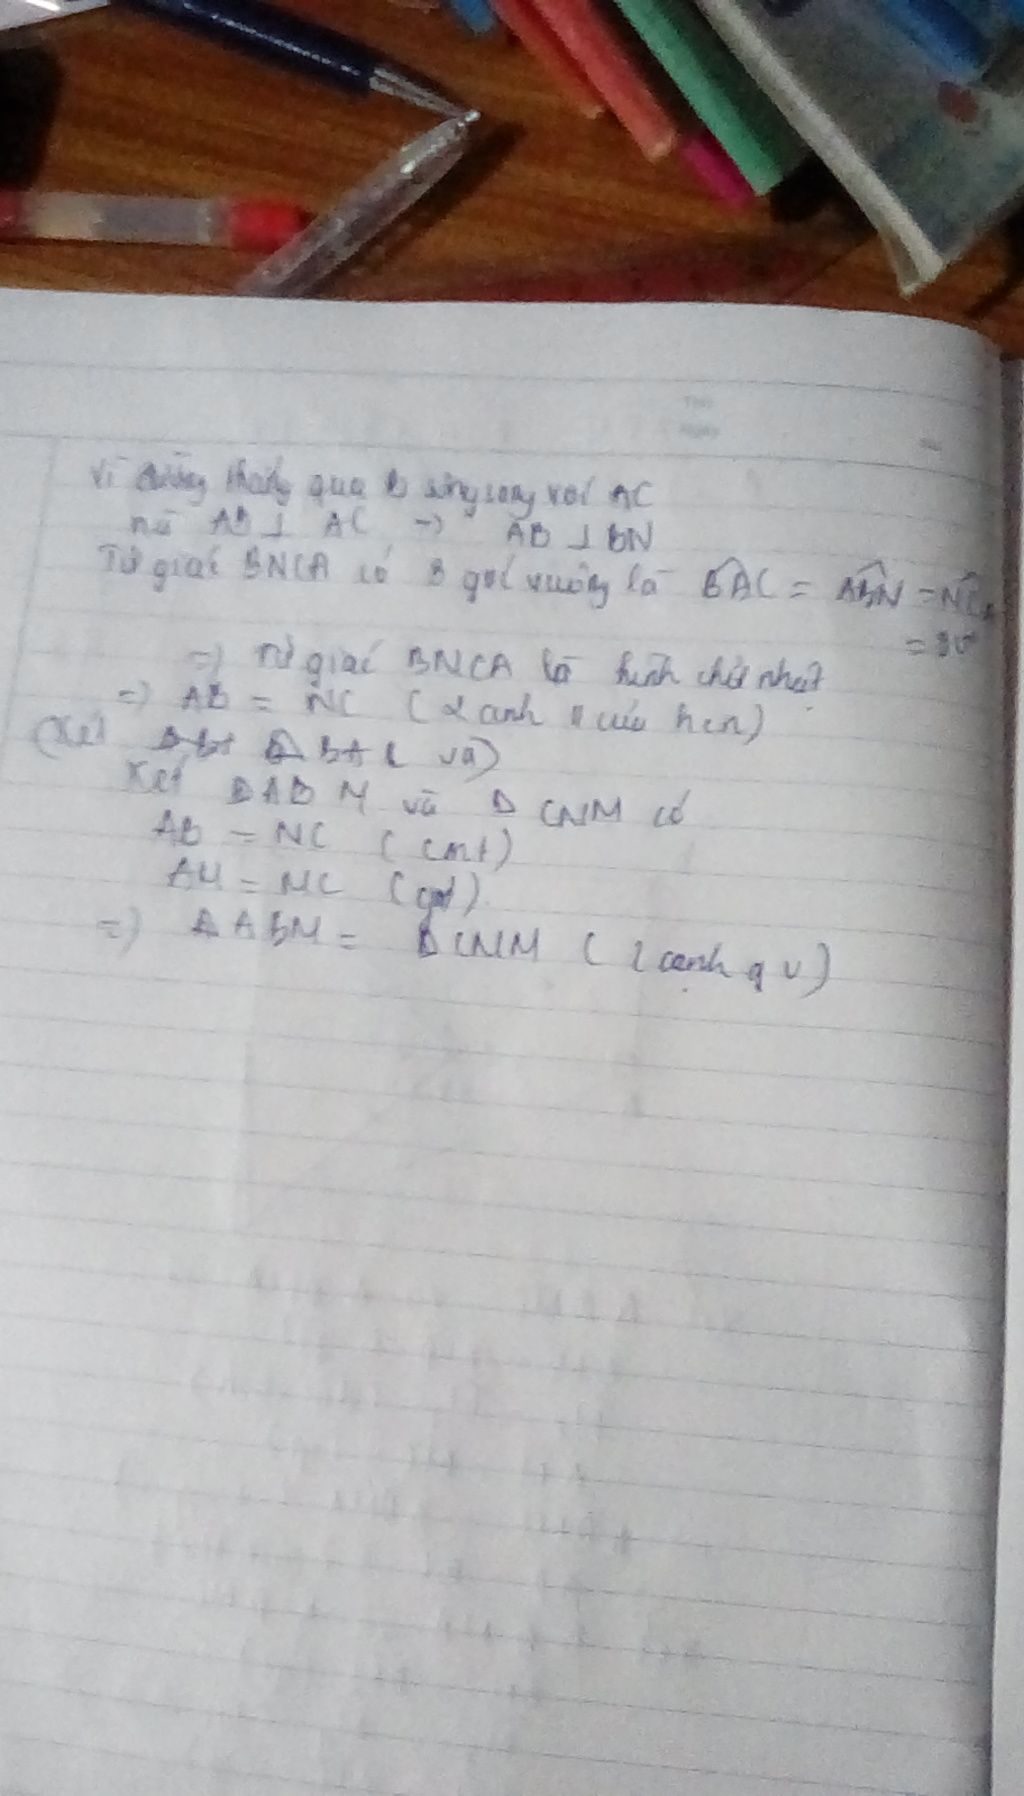 Vì đường thẳng qua B song song với AC
mà AB ⊥ AC => AB ⊥ BN
Tứ giác BNCA có 3 góc vuông là BAC = ABN = NCA
= 90°
=> Tứ giác BNCA là hình chữ nhật
=> AB = NC (2 cạnh hcn)
(Xét và)
Xét Δ ABM và Δ CNM có
AB = NC (cmt)
AM = MC (gt)
=> Δ ABM = Δ CNM (2 cạnh gv)